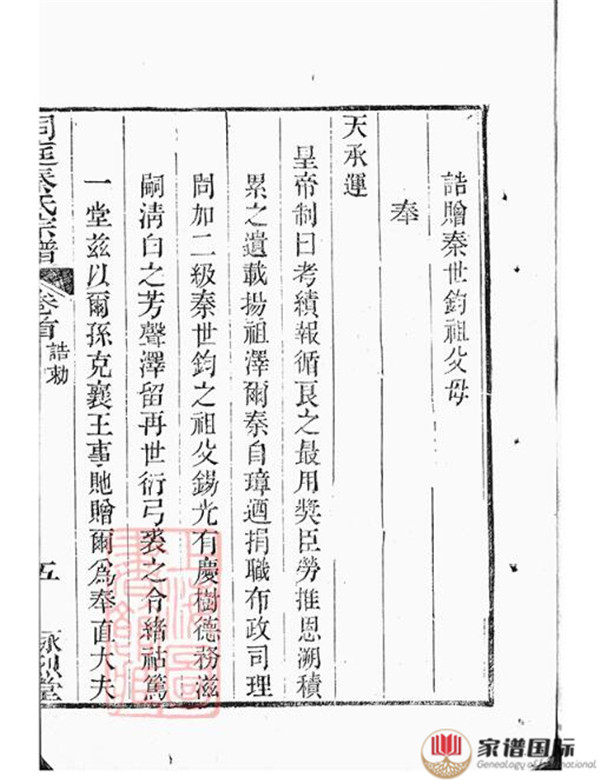 誥贈秦世鈞祖父母
奉
天承運
皇帝制曰考績報循良之最用獎臣勞推恩溯積
累之遺載揚祖澤爾秦自璋迺捐職布政司理
問加二級秦世鈞之祖父錫光有慶樹德務滋
嗣清白之芳聲澤留再世衍弓裘之令緒祜篤
一堂茲以爾孫克襄王事貤贈爾為奉直大夫
洞庭秦氏宗譜
卷首
誥勅
五
家谱国际
Genealogy of International